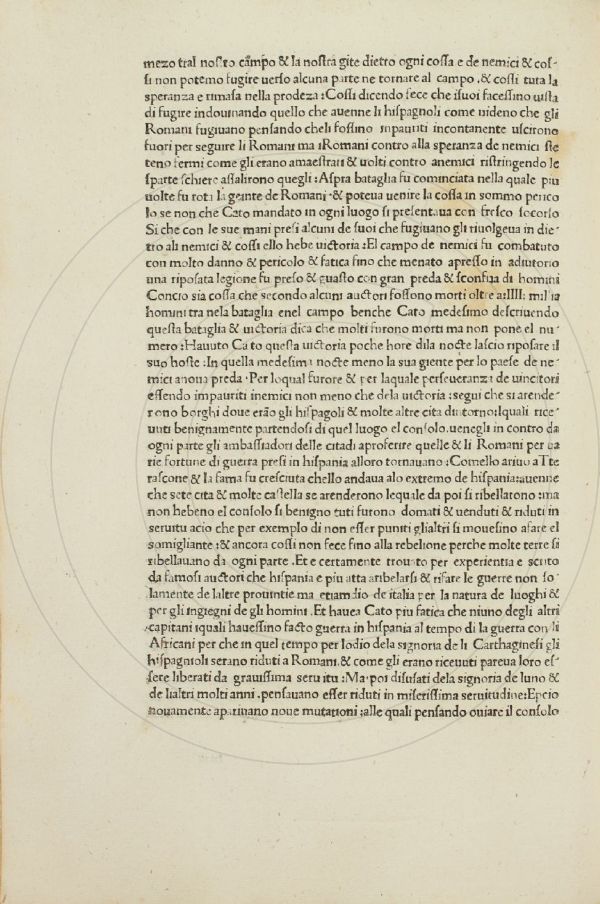 mezo tral nostro cãmpo & la nostra gite dietro ogni cossa e de nemici & cos-
si non potemo fugire uerso alcuna parte ne tornare al campo .& cossi tuta la
speranza e rimasa nella prodeza :Cossi dicendo fece che isuoi facessino uista
di fugire indouinando quello che auenne li hispagnoli come uideno che gli
Romani fugiuano pensando cheli fossino inpauriti incontanente uscirono
fuori per seguire li Romani ma iRomani contro alla speranza de nemici ste
teno fermi come gli erano amaestrati & uolti contro anemici ristringendo le
sparte schiere assalirono quegli :Aspra bataglia fu cominciata nella quale piu
uolte fu rota la geante de Romani .& poteua uenire la cossa in sommo perico
lo se non che Cato mandato in ogni luogo si presentaua con fresco socorso
Si che con le sue mani presi alcuni de suoi che fugiuano gli riuolgeua in die-
tro ali nemici & cossi ello hebe uictoria :El campo de nemici fu combatuto
con molto danno & pericolo & fatica fino che menato apresso in adiutorio
una riposata legione fu preso & guasto con gran preda & sconfita di homini
Concio sia cossa che secondo alcuni auctori fossono morti oltre a:IIII: milia
homini tra nela bataglia enel campo benche Cato medesimo descriuendo
questa bataglia & uictoria dica che molti furono morti ma non pone el nu-
mero :Hauuto Cato questa uictoria poche hore dila nocte lascio riposare il
suo hoste :In quella medesima nocte meno la sua giente per lo paese de ne-
mici anoua preda .Per loqual furore & per laquale perseueranza de uincitori
essendo impauriti inemici non meno che dela uictoria :segui che si arende-
rono borghi doue erão gli hispagoli & molte altre cita dintorno:iquali rice-
uuti benignamente partendosi di quel luogo el consolo .uenegli in contro da
ogni parte gli ambassiadori delle citadi aproferire quelle & li Romani per ua
rie fortune di guerra presi in hispania alloro tornauano :Comello ariuo aTte
rascone & la fama fu cresciuta chello andaua alo extremo de hispania:auenne
che sete cita & molte castella se arenderono lequale da poi si ribellarono :ma
non hebeno el consolo si benigno tuti furono domati & uenduti & riduti in
seruitu acio che per exemplo di non esser puniti glialtri si mouesino afare el
somigliante :& ancora cossi non fece fino alla rebelione perche molte terre si
ribellauano da ogni parte .Et e certamente trouato per experientia e scrito
da famosi auctori che hispania e piu atta aribelarsi & rifare le guerre non so-
lamente de laltre prouintie ma etiamdio de italia per la natura de luoghi &
per gli ingiegni de gli homini .Et hauea Cato piu fatica che niuno degli altri
capitani iquali hauessino facto guerra in hispania al tempo di la guerra con li
Africani per che in quel tempo per lodio dela signoria de li Carthaginesi gli
hispagnioli serano riduti a Romani .& come gli erano riceuuti pareua loro es-
sere liberati da grauissima seruitu :Ma poi disusati dela signoria de luno &
de lialtri molti anni .pensauano esser riduti in miserissima seruitudine:Epcio
nouamente aparinano noue mutationi :alle quali pensando ouiare il consolo